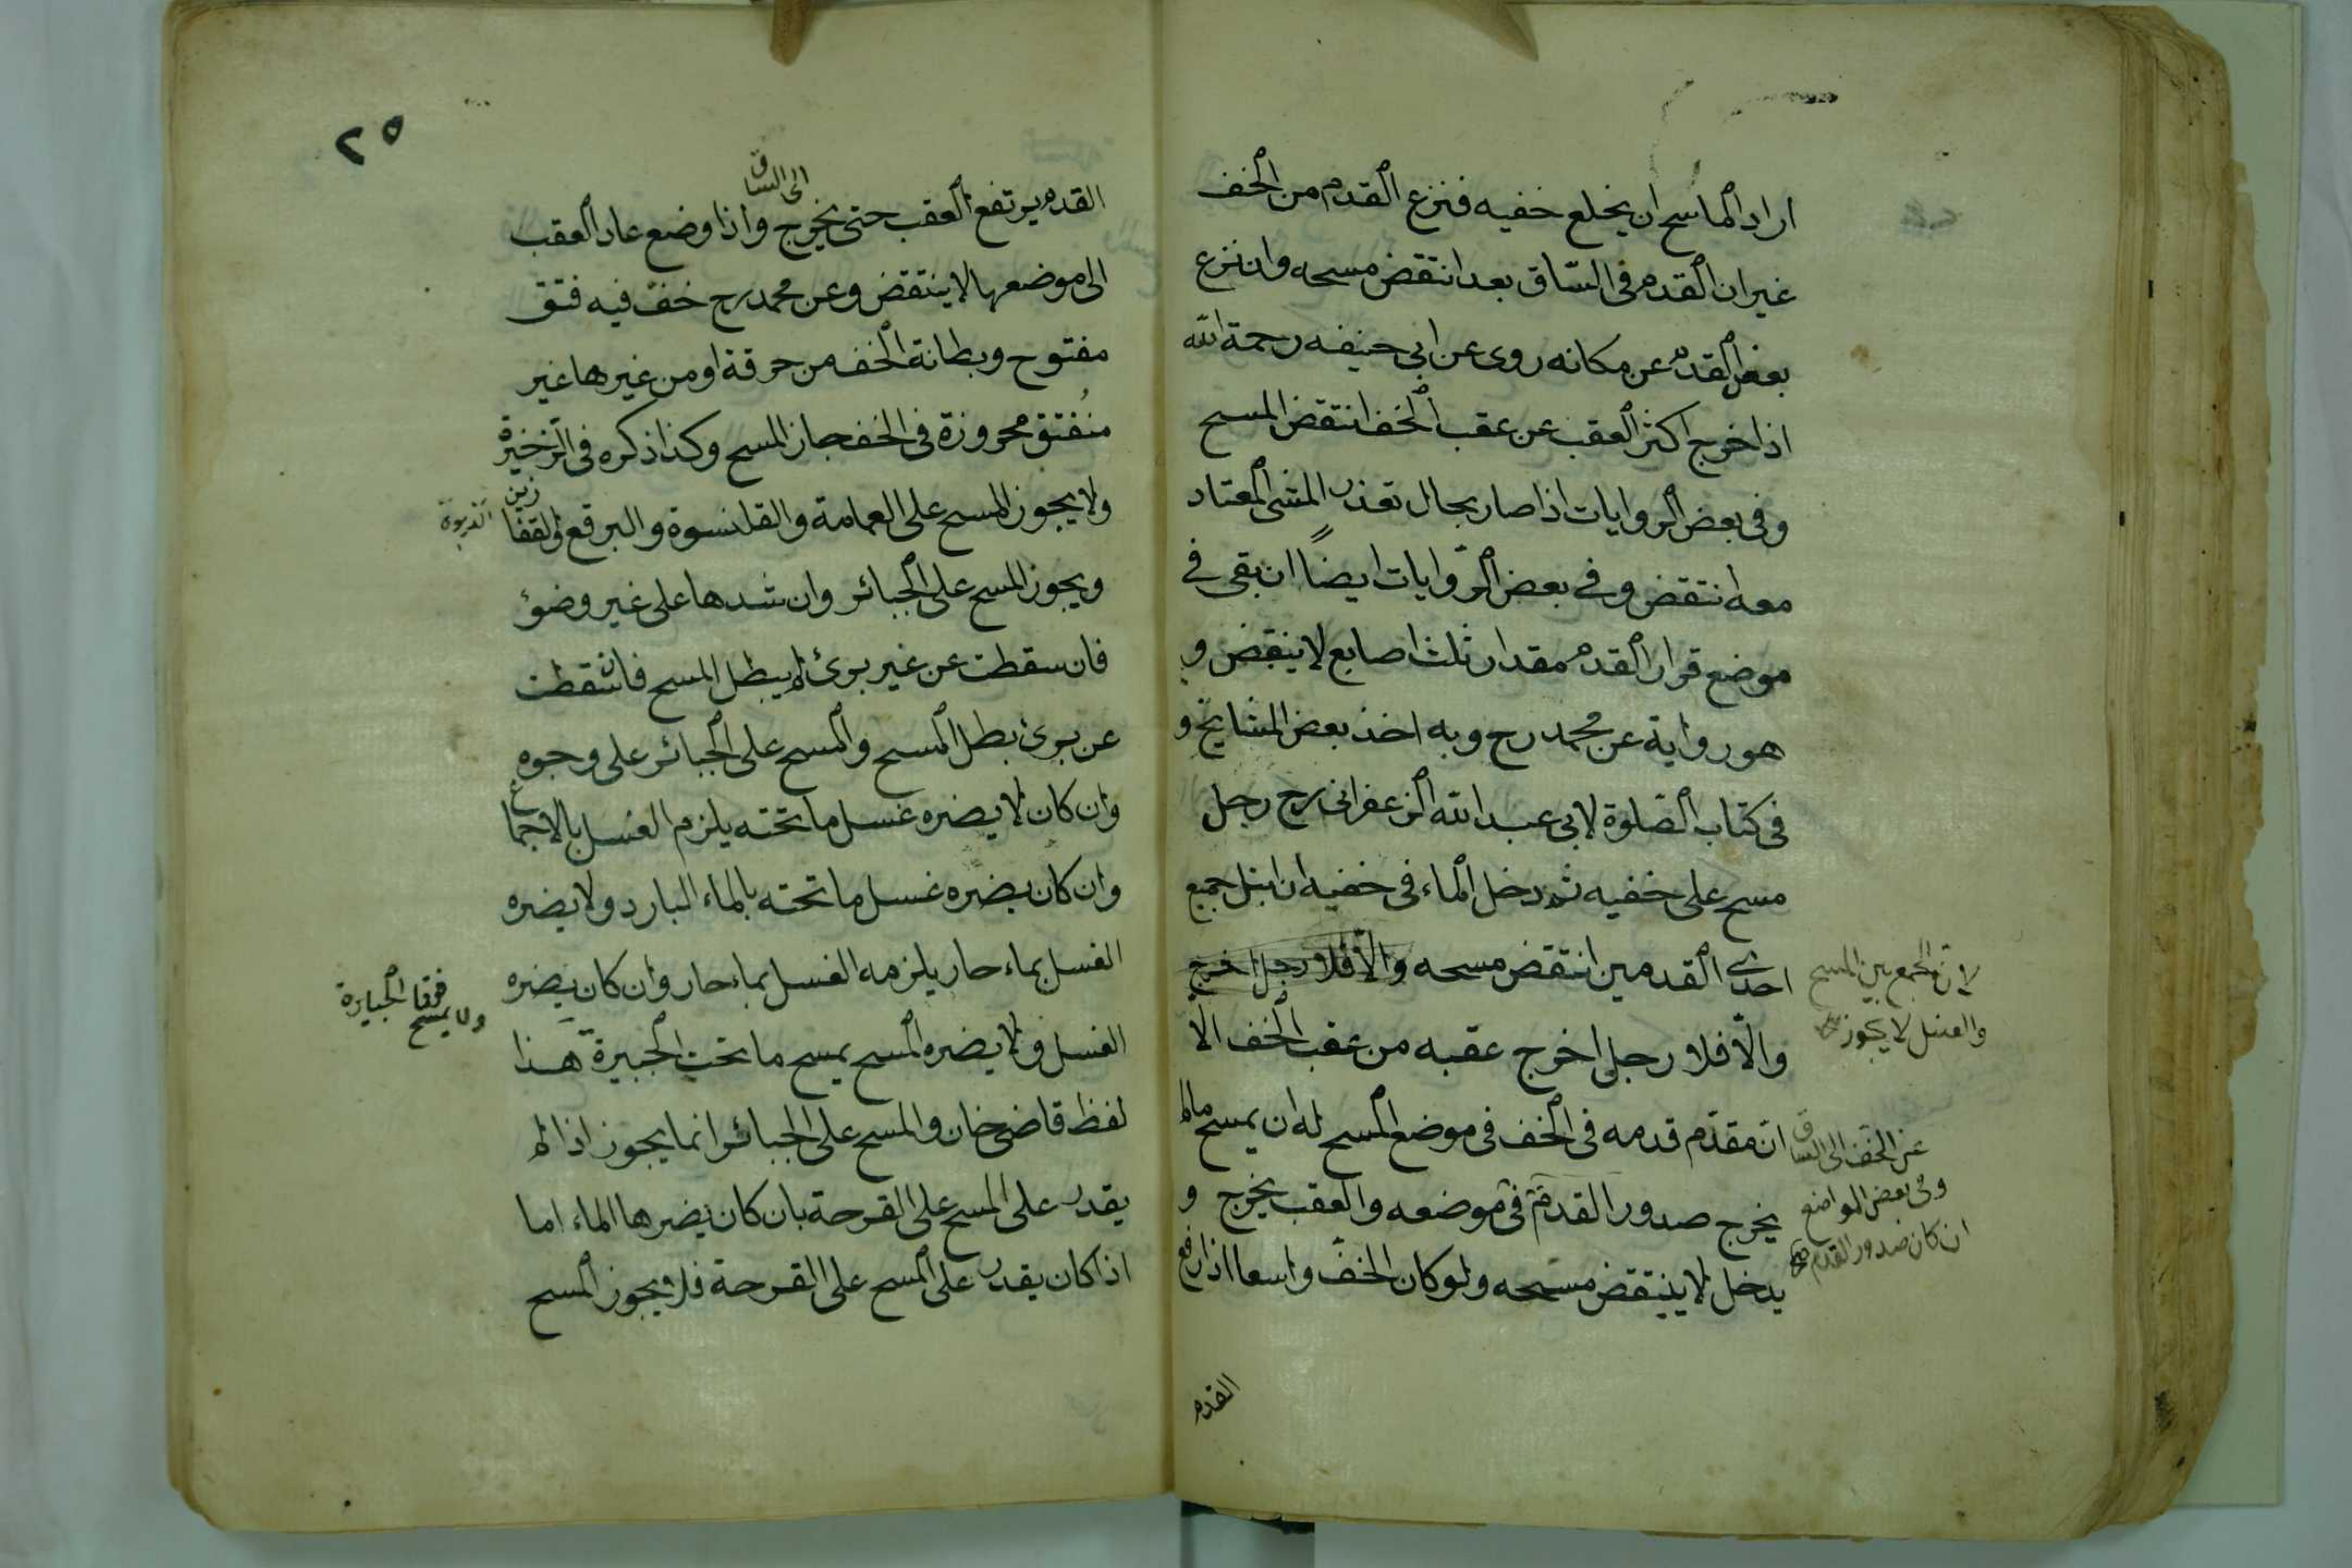 اراد الماسح ان يخلع خفيه فنزع القدم من الخف
غير ان القدم فى الساق بعد انتقض مسحه وان نزع
بعض القدم عن مكانه روى عن ابى حنيفه رحمة الله
اذا خرج اكثر العقب عن عقب الخف انتقض المسح
وفى بعض الروايات اذا صار بحال تعذر المشى المعتاد
معه انتقض وفى بعض الروايات ايضاً ان بقى فى
موضع قرار القدم مقدار ثلث اصابع لا ينتقض و
هو رواية عن محمد رح وبه اخذ بعض المشايخ و
فى كتاب الصّلوة لابى عبد الله الزعفرانى رح رجل
مسح على خفيه ثم دخل الماء فى خفيه ان ابتل جميع
احدى القدمين انتقض مسحه والّا فلا رجل اخرج
لان الجمع بين المسح
والغسل لا يجوز
والّا فلا رجل اخرج عقبه من عقب الخف الّا
انّ مقدّم قدمه فى الخف فى موضع المسح له ان يمسح مالم
عن الخف الى الساق
يخرج صدور القدم فى موضعه والعقب يخرج و
وفى بعض المواضع
ان كان صدور القدم
يدخل لا ينتقض مسحه ولو كان الخفّ واسعا اذا رفع
القدم
٢٥
القدم يرتفع العقب حتى يخرج واذا وضع عاد العقب
الى الساق
الى موضعها لا ينتقض وعن محمد رح خفّ فيه فتق
مفتوح وبطانة الخف من خرقة او من غيرها غير
منفتق محروزة فى الخف جاز المسح وكذا ذكره فى الذخيرة
ولا يجوز المسح على العمامة والقلنسوة والبرقع والقفا
زين
ويجوز المسح على الجبائر وان شدها على غير وضوٴ
فان سقطت عن غير برئ لم يبطل المسح فان سقطت
عن برئ بطل المسح والمسح على الجبائر على وجوه
وان كان لا يضره غسل ما تحته يلزم الغسل بالاجماع
وان كان يضره غسل ما تحته بالماء البارد ولا يضره
الغسل بماء حار يلزمه الغسل بماء حار وان كان يضره
الغسل ولا يضره المسح يمسح ما تحت الجبيرة هذا
ولا يمسح
فوقا الجبايرة
لفظ قاضى خان والمسح على الجبائر انما يجوز اذا لم
يقدر على المسح على القرحة بان كان يضرها الماء اما
اذا كان يقدر على المسح على القرحة فلا يجوز المسح